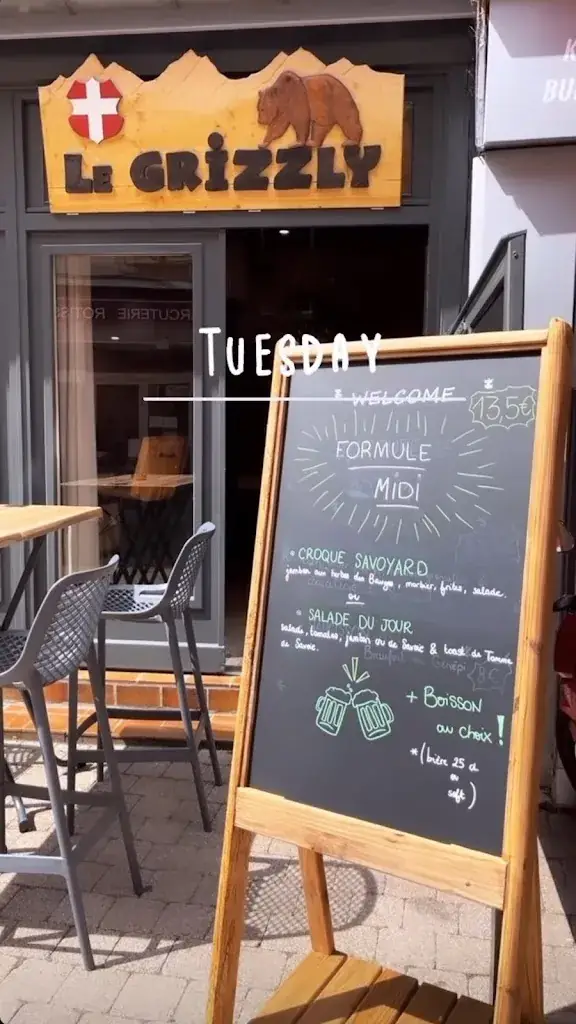 LE GRIZZLY
K
BU
RCUTERIE ROTISS
TUESDAY
* WELCOME *
13,5€
FORMULE
MIDI
* CROQUE SAVOYARD
jambon aux herbes des Bauges, morbier, frites, salade.
ou
* SALADE DU JOUR
salade, tomates, jambon cru de Savoie & toast de Tomme
de Savoie.
+ BOISSON
au choix!
*(bière 25 cl
ou
soft)